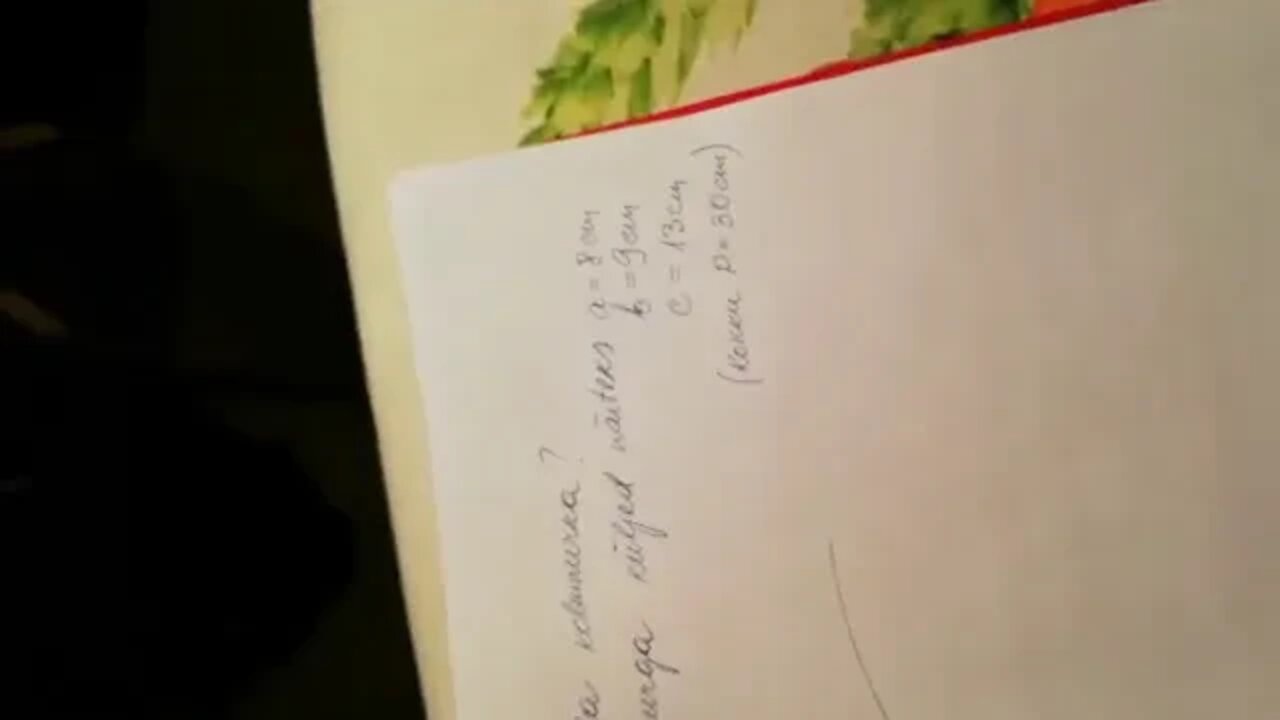 kolmnurka?
küljed näiteks a = 8 cm
b = 9 cm
c = 13 cm
(kokku P = 30 cm)